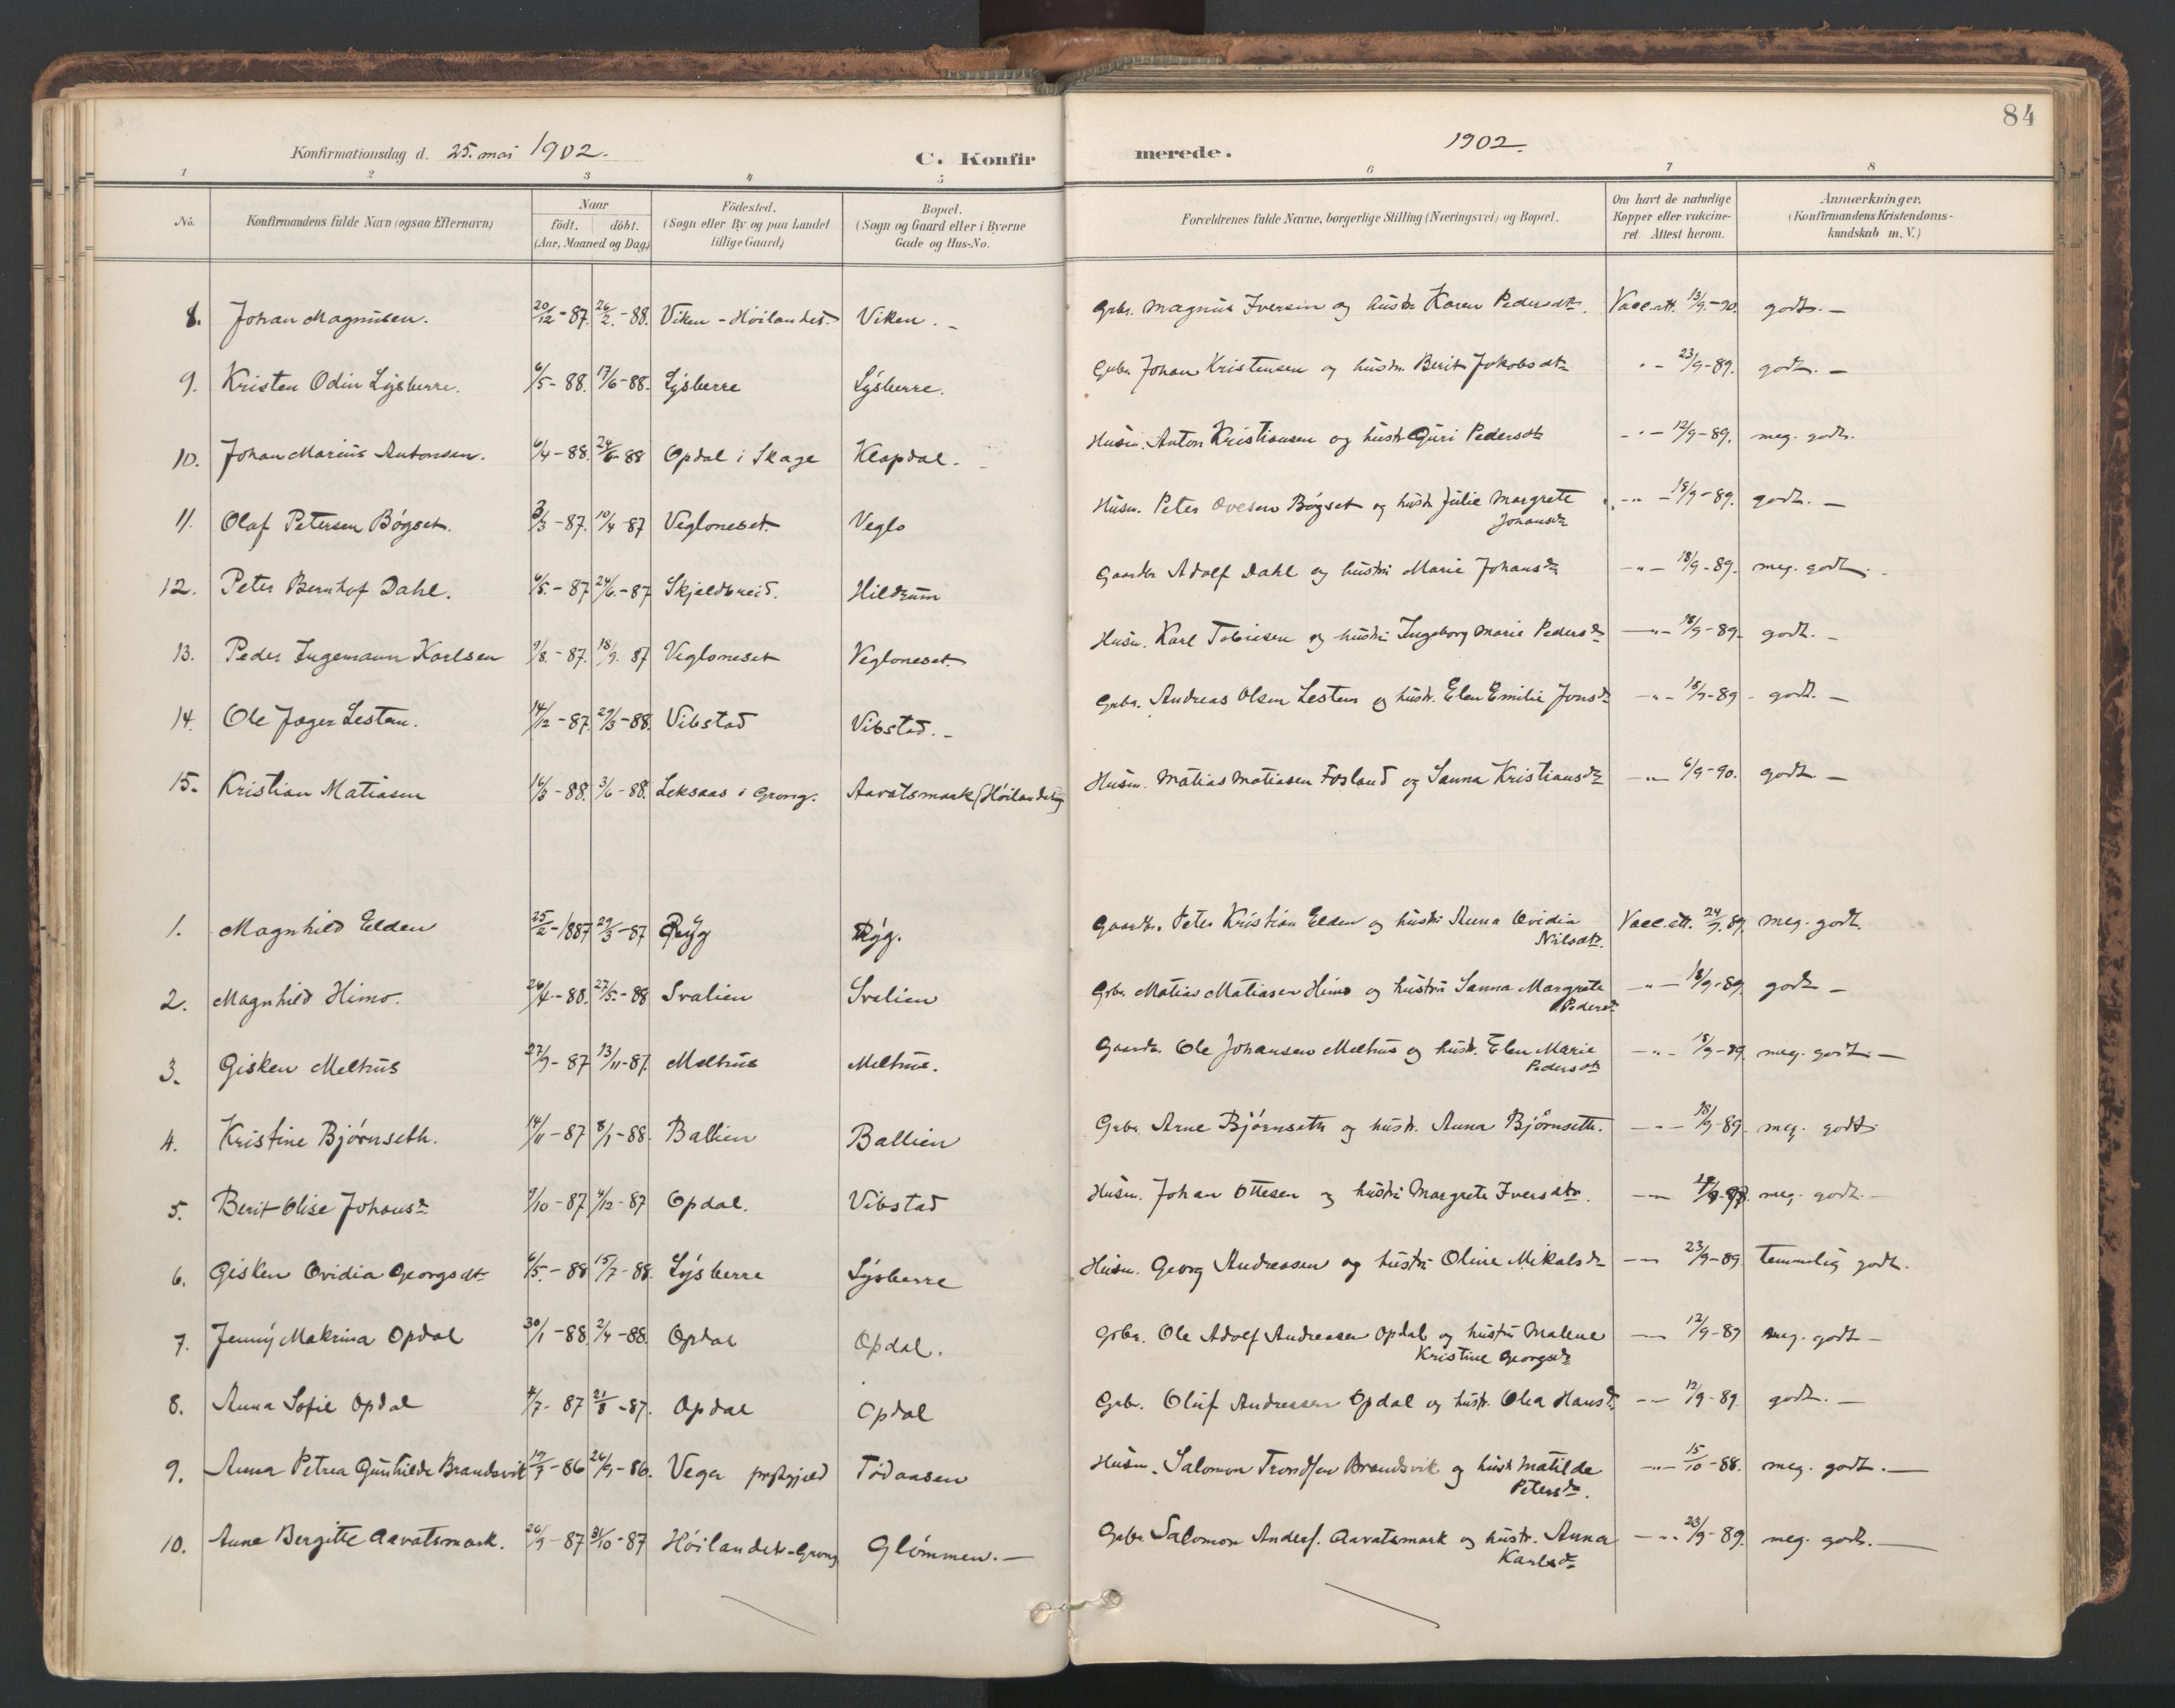 84
Konfirmationsdag d. 25. mai 1902. C. Konfirmerede. 1902.
1 2 3 4 5 6 7 8
No. Konfirmandens fulde Navn (ogsaa Efternavn) Naar födt. döbt. (Aar, Maaned og Dag) Födested. (Sogn eller By og paa Landet tillige Gaard) Bopæl. (Sogn og Gaard eller i Byerne Gade og Hus-No. Forældrenes fulde Navne, borgerlige Stilling (Næringsvei) og Bopæl. Om havt de naturlige Kopper eller vakcineret. Attest herom. Anmærkninger. (Konfirmandens Kristendomskundskab m. V.)
8. Johan Magnusen. 20/12-87. 26/2.-88. Viken - Höilandet. Viken. - Grbr. Magnus Iversen og hustr Karen Pedersdtr. Vacc.att. 13/9.-90. godt. -
9. Kristen Odin Lysberre. 6/5-88. 17/6-88. Lysberre Lysberre. Grbr Johan Kristensen og hustr. Berit Jakobsdtr " - 23/9-89. godt. -
10. Johan Marius Antonsen. 6/4-88. 24/6-88 Opdal i Skage Klopdal. - Husm. Anton Kristiansen og hustr Guri Pedersdtr - " - 12/9-89. meg. godt.
11. Olaf Petersen Bøgset. 3/3-87. 10/4-87 Vegloneset. Veglo Husm. Peter Ovesen Bøgset og hustr Julie Margrete Johansdtr - " - 18/9-89. godt. -
12. Peter Bernhof Dahl. 6/5.-87 24/6.-87 Skjeldbreid. Hildrum Gaardbr Adolf Dahl og hustru Marie Johansdtr - " - 18/9-89. meg. godt. -
13. Peder Ingemann Karlsen 9/8.-87. 18/9. 87 Vegloneset Vegloneset. Husm. Karl Tobiesen og hustru Ingeborg Marie Pedersdtr - " - 18/9-89. godt. -
14. Ole Jæger Lesten. 14/12-87. 29/3-88. Vibstad Vibstad. - Grbr. Andreas Olsen Lesten og hustr. Elen Emilie Jonsdtr - " - 18/9-89 - godt. -
15. Kristian Matiasen 16/3-88. 3/6-88. Leksaas i Grong. Aavatsmark (Höilandet) Husm. Matias Matiasen Fosland og Sanna Kristiansdtr - " - 6/9-90. godt. -
1. Magnhild Elden 25/2-1887 29/3-87 Ryg Ryg. Gaardbr. Peter Kristian Elden og hustru Anna Ovidia Nilsdtr. Vacc.att. 24/9.89. meg. godt.
2. Magnhild Himo. 26/4-88. 27/5.-88 Svalien Svalien Grbr. Matias Matiasen Himo og hustru Sanna Margrete Pedersdtr - " - 18/9-89. godt -
3. Gisken Meltrus 27/9-87 13/11-87. Meltrus Meltrus. Gaardbr. Ole Johansen Meltrus og hustr. Elen Marie Pedersdtr - " - 18/9-89 meg. godt. -
4. Kristine Bjørnseth. 14/11-87 8/1-88. Ballien Ballien Grbr. Arne Bjørnseth og hustr. Anna Bjørnseth. - " - 18/9-89. meg. godt.
5. Berit Olise Johansdtr. 9/10-87 4/12-87 Opdal. Vibstad Husm. Johan Ottesen og hustru Margrete Iversdtr. meg. godt. -
6. Gisken Ovidia Georgsdtr 6/5.-88 15/7-88. Lysberre Lysberre Husm. Georg Andreasen og hustru Oline Mikalsdtr - " - 23/9-89 temmelig godt.
7. Jenny Makrina Opdal 30/1-88. 2/4-88. Opdal Opdal. Grbr. Ole Adolf Andreasen Opdal og hustru Malene Kristine Georgsdtr - " - 12/9-89 meg. godt -
8. Anna Sofie Opdal 4/7-87 21/8-87. Opdal Opdal Grbr. Oluf Andreasen Opdal og hustr. Olea Hansdtr. - " - 12/9-89. godt. -
9. Anna Petrea Gunhilde Brandsvik 19/7-86 26/9-86. Vega prestgjeld Tödaasen Husm. Salomon Trondsen Brandsvik og hustr Matilde Petersdtr. - " - 15/10-88. meg. godt. -
10. Anna Bergitte Aavatsmark. 26/9-87 31/10-87 Höilandet-Grong. Glömmen. - Grbr. Salomon Anders. Aavatsmark og hustr. Anna Karlsdtr - " - 23/9-89. meg. godt. -